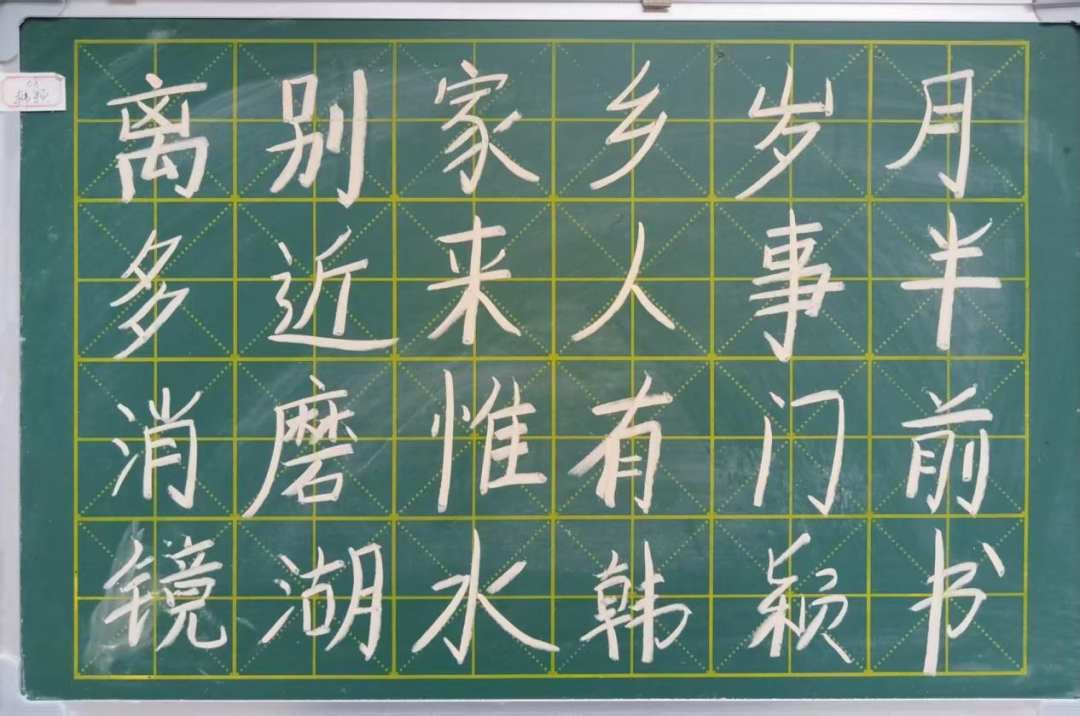 离别家乡岁月
多近来人事半
消磨惟有门前
镜湖水韩颖书